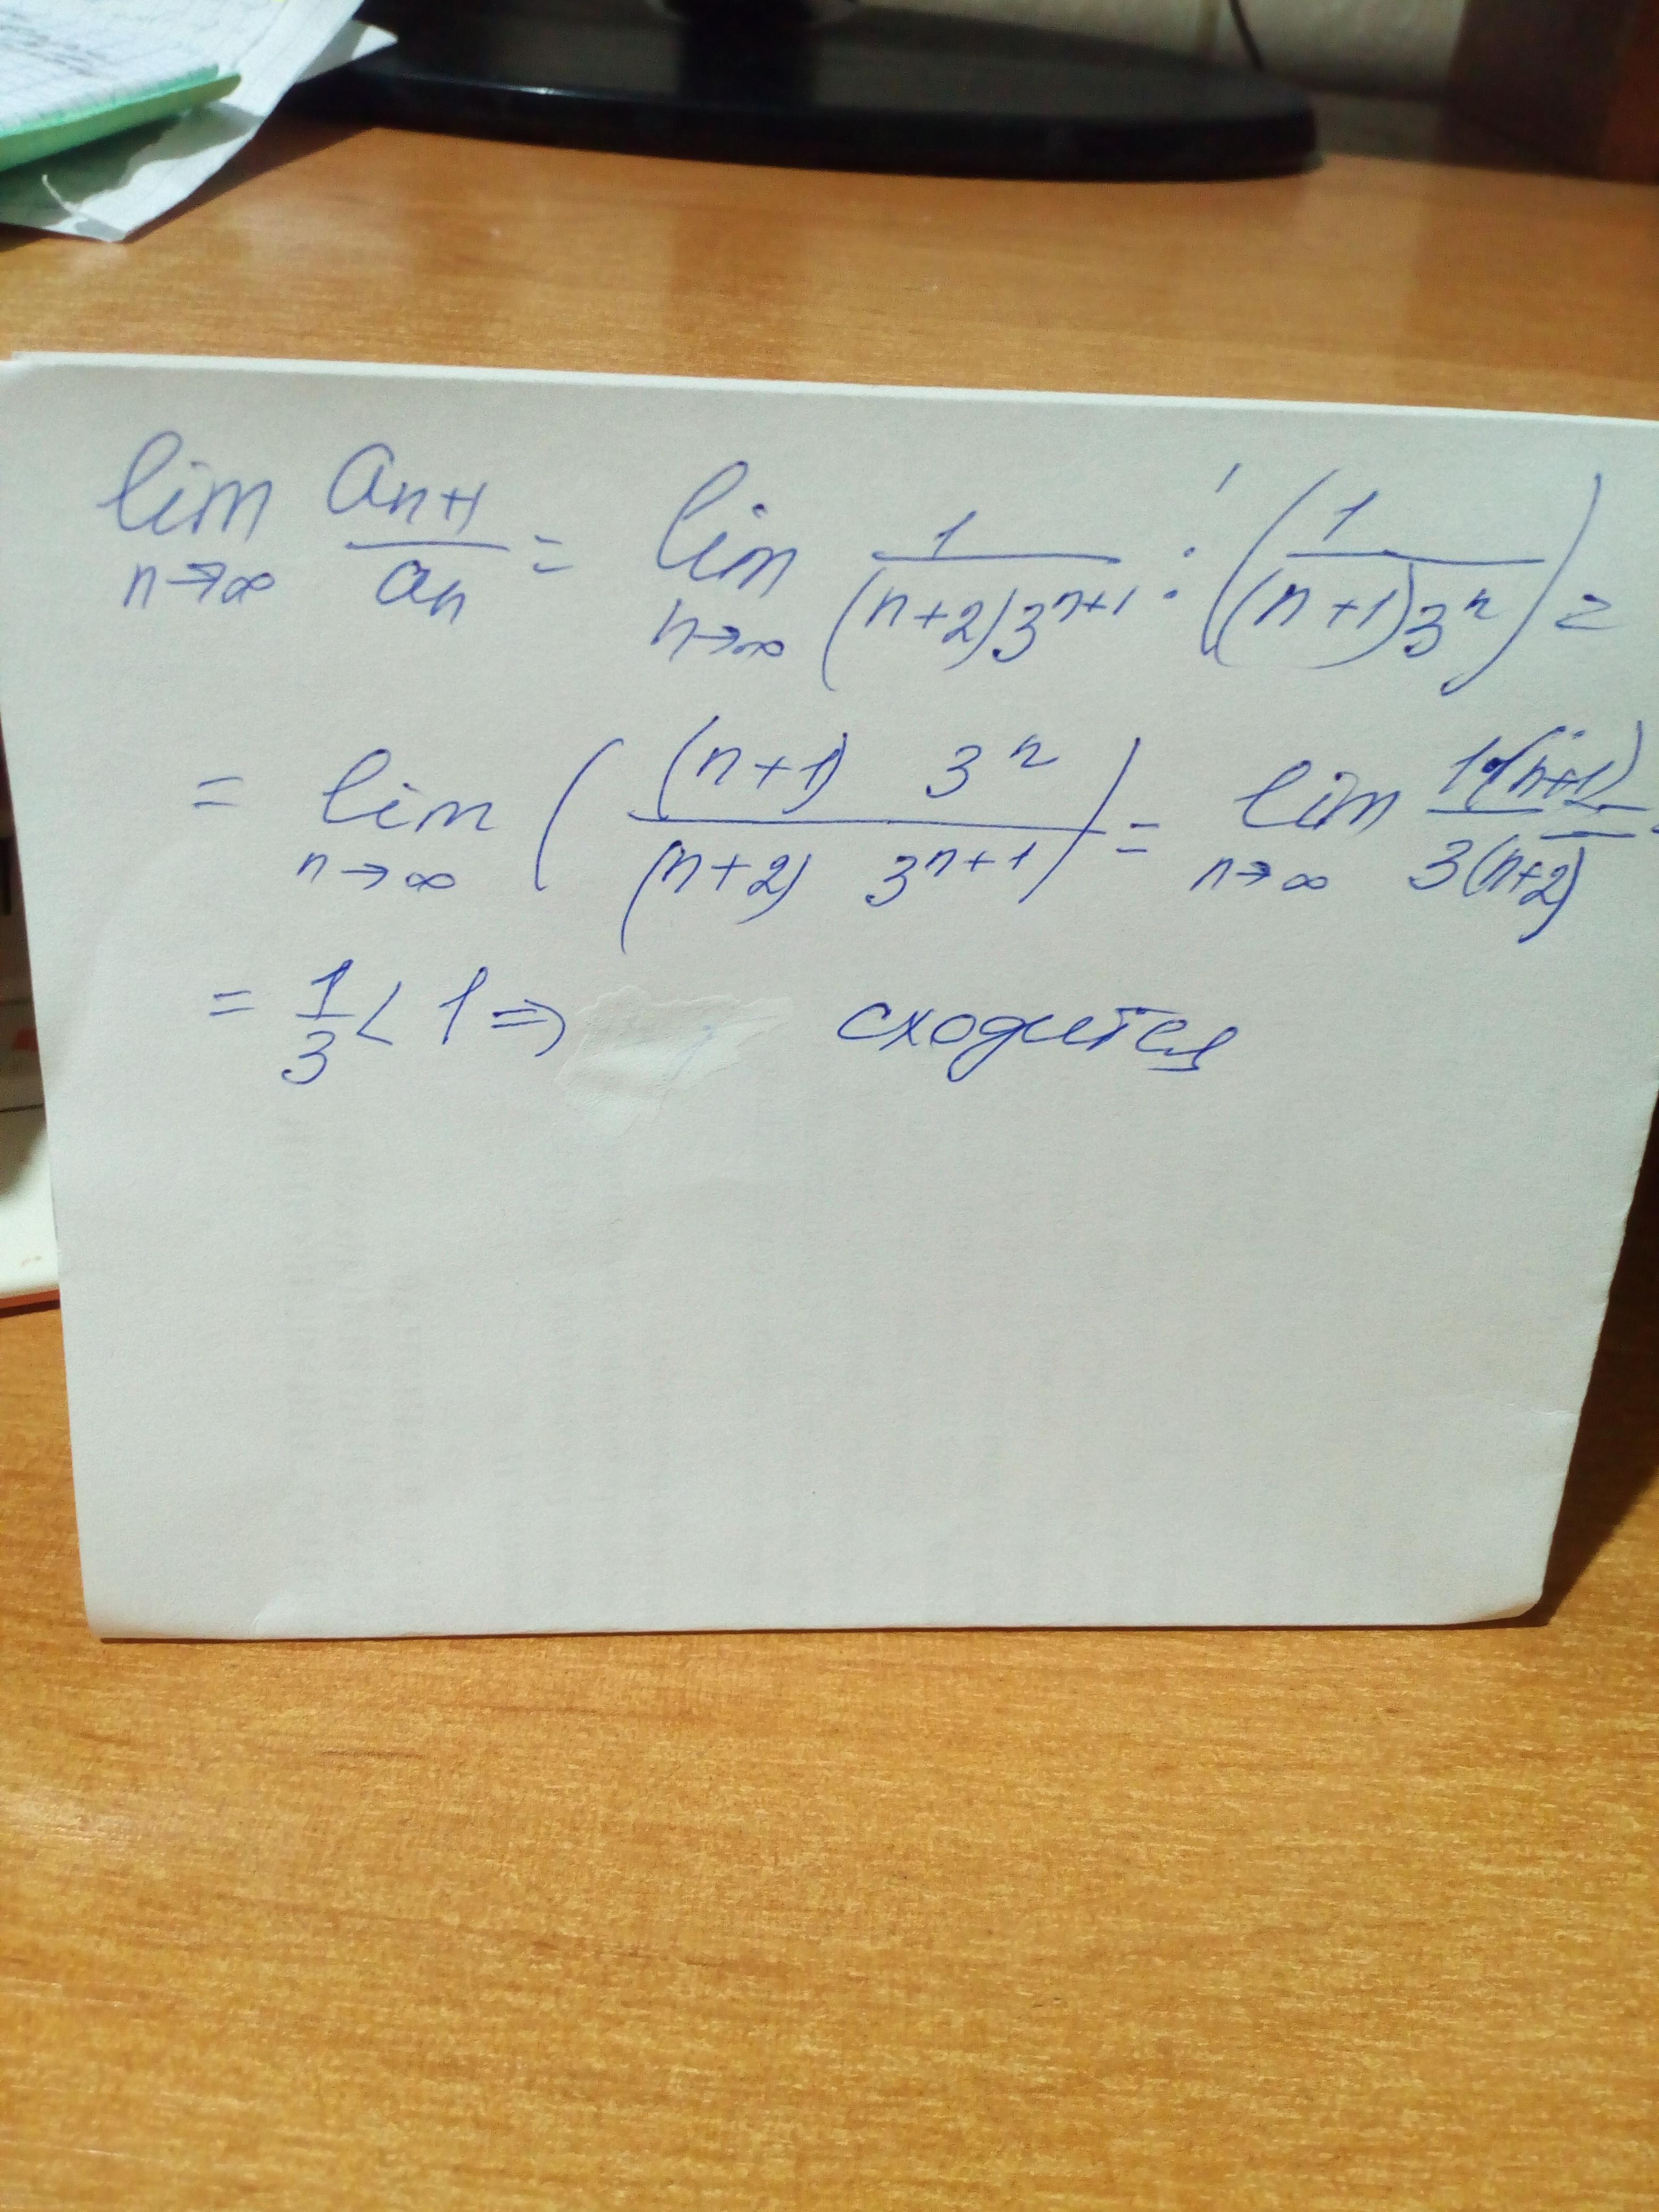 lim n→∞ an+1/an = lim n→∞ 1/((n+2)3^(n+1)) : (1/((n+1)3^n)) =
= lim n→∞ ((n+1) 3^n / (n+2) 3^(n+1)) = lim n→∞ 1·(n+1)/3(n+2)
= 1/3 < 1 ⇒ сходится